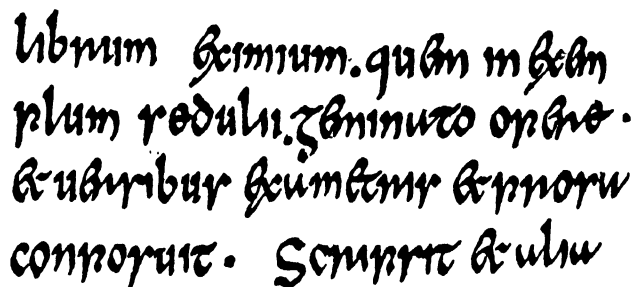 librum eximium. quem in exem
plum sedulii. geminato opere.
et uersibus exametris et prosa
conposuit. Scripsit et alia